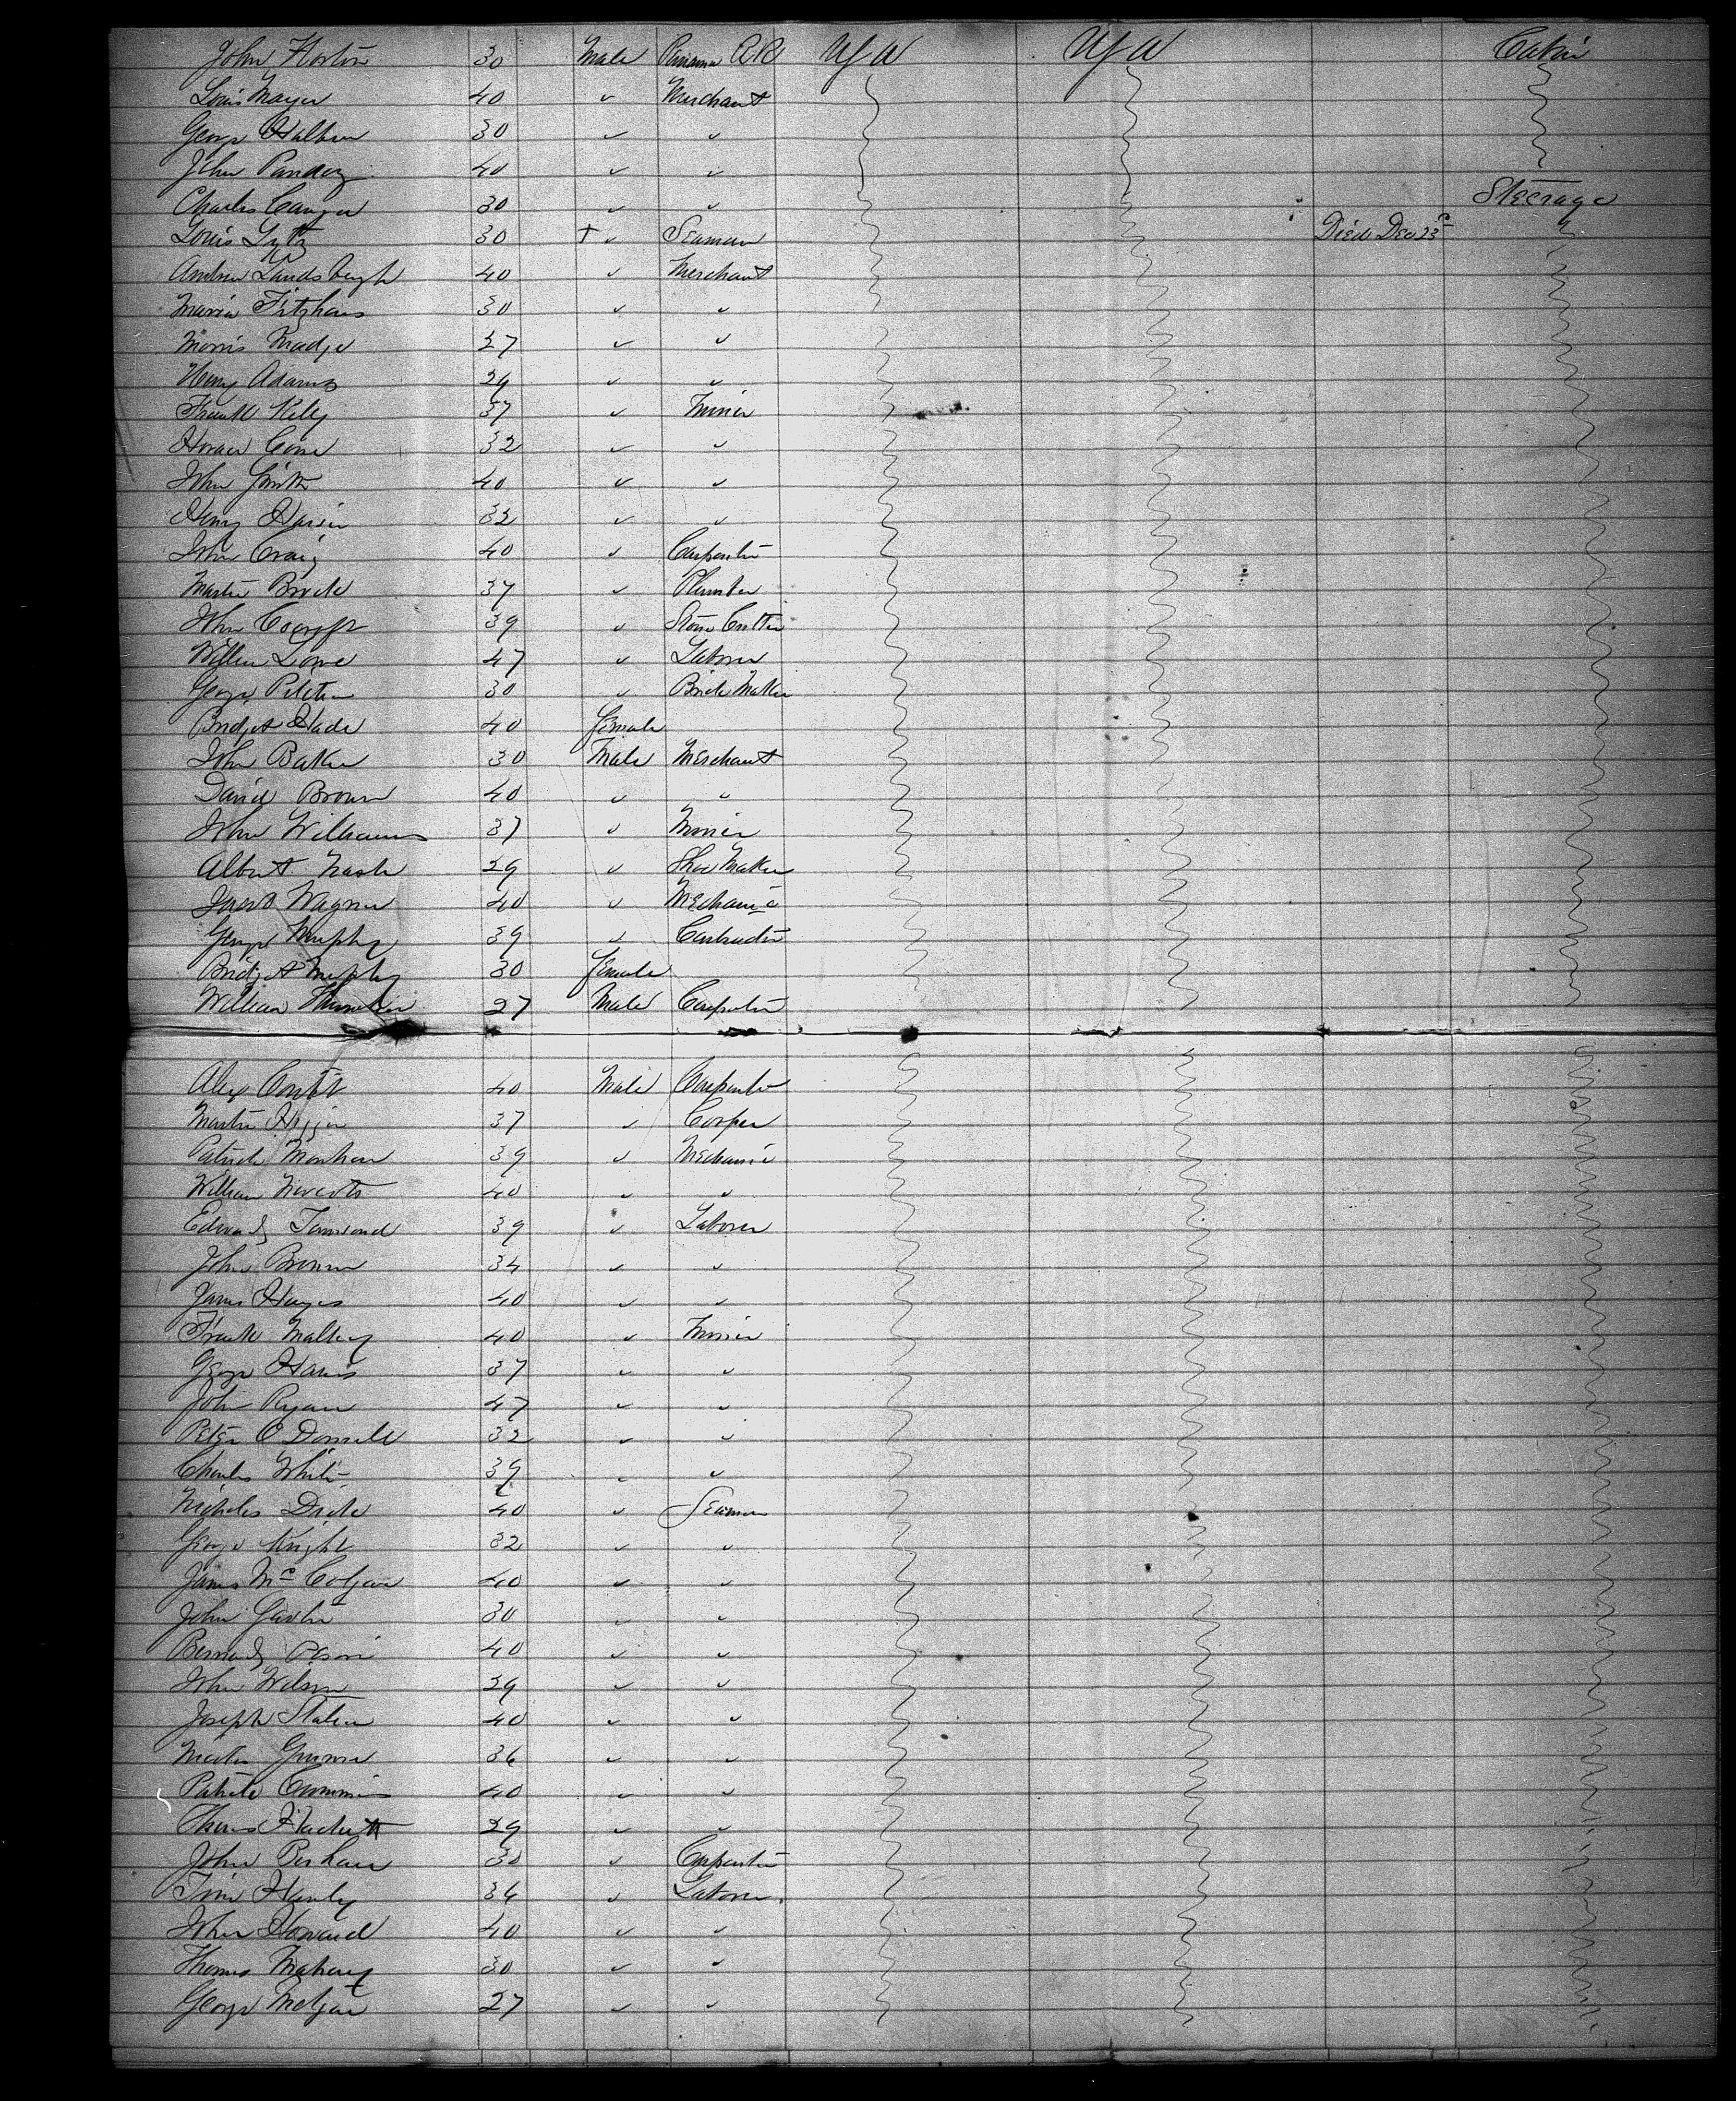 John Horton 30 Male Panama RR USA USA Cabin
Louis Mayer 40 " Merchant
George 30 " "
John 40 " "
Charles 30 " " Steerage
Louis 30 + " Seaman Died Dec 23d
Andrew Landsbergh 40 " Merchant
Maria Fitzhans 30 " "
Morris Madge 27 " "
Henry Adams 29 " "
Frank Kely 37 " Miner
Horace Cone 32 " "
John Smith 40 " "
Henry 32 " "
John Craig 40 " Carpenter
Martin Brock 37 " Plumber
John 39 " Stone Cutter
William Lowe 47 " Laborer
George 30 " Brick Maker
Bridget Slade 40 female
John Baker 30 Male Merchant
David Brown 40 " "
John Williams 37 " Miner
Albert Nash 29 " Shoe Maker
Jacob Wagner 40 " Mechanic
George Murphy 39 "
Bridget Murphy 30 female
William 27 Male Carpenter
Alex 40 Male Carpenter
Martin 37 " Cooper
Patrick Monhan 39 " Mechanic
William 40 " "
Edward Townsend 39 " Laborer
John Brown 34 " "
James Hayes 40 " "
Frank Malloy 40 " Miner
George Harris 37 " "
John Ryan 47 " "
Peter O Donnell 32 " "
Charles White 39 " "
Nicholas Dick 40 " Seaman
George Knight 32 " "
James Mc Colgan 40 " "
John 30 " "
Bernard 40 " "
John Wilson 29 " "
Joseph 40 " "
Martin 36 " "
Patrick Cummins 40 " "
Thomas Hackett 29 " "
John 30 " Carpenter
Tim Hanly 36 " Laborer
John Howard 40 " "
Thomas Mahony 30 " "
George 27 " "